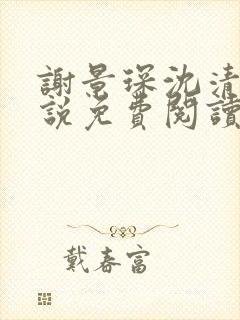 謝景琛沈清
說免費閱讀
戴春富